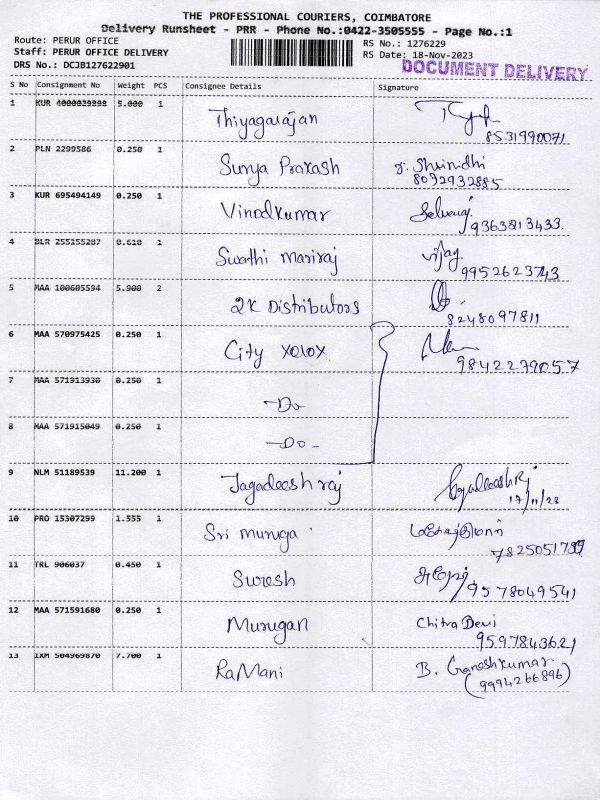 THE PROFESSIONAL COURIERS, COIMBATORE
Delivery Runsheet - PRR - Phone No.:0422-3505555 - Page No.:1
Route: PERUR OFFICE
RS No.: 1276229
Staff: PERUR OFFICE DELIVERY
RS Date: 18-Nov-2023
DRS No.: DCJB127622901
DOCUMENT DELIVERY
S No Consignment No Weight PCS Consignee Details Signature
1 KUR 4000029898 5.000 1
Thiyagarajan
8531990071
2 PLN 2299586 0.250 1
Surya Prakash
Shrinidhi
8072932885
3 KUR 695494149 0.250 1
Vinodkumar
Selvaraj
9363213433
4 BLR 255155287 0.610 1
Swathi Mariraj
Vijay
9952623743
5 MAA 100605594 5.900 2
2K Distributors
8248097811
6 MAA 570975425 0.250 1
City xerox
9842279057
7 MAA 571913930 0.250 1
-Do-
8 MAA 571915049 0.250 1
-Do-
9 NLM 51189539 11.200 1
Jagadeesh raj
17/11/23
10 PRO 15307299 1.555 1
Sri Muruga
7825051799
11 TRL 906037 0.450 1
Suresh
சுரேஷ்
9578049541
12 MAA 571591680 0.250 1
Murugan
Chitra Devi
9597843621
13 IXM 504969870 7.700 1
RaMani
B. Ganeshkumar
(9994266896)